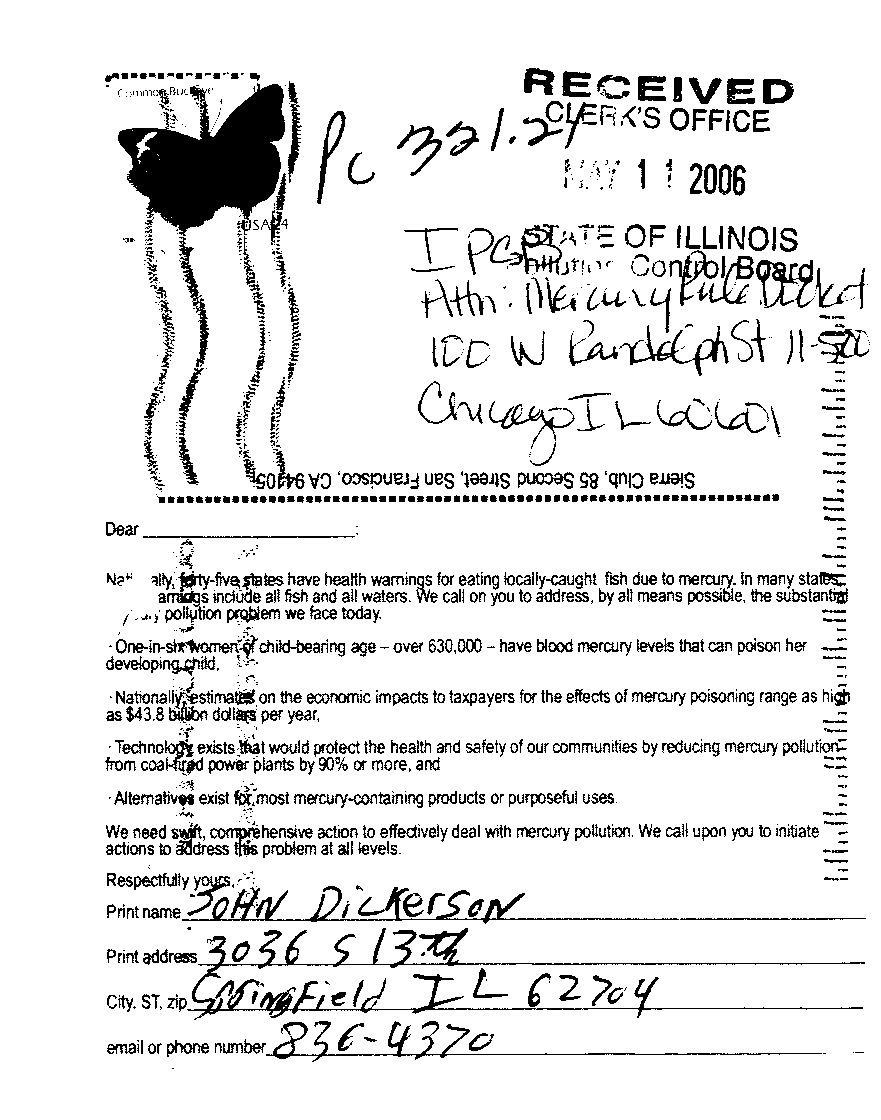 Common Buckeye
USA 24
RECEIVED
CLERK'S OFFICE
MAY 11 2006
STATE OF ILLINOIS
Pollution Control Board
PC 321.24
IPCB
Attn: Mercury Rule Docket
100 W Randolph St 11-500
Chicago IL 60601
Sierra Club, 85 Second Street, San Francisco, CA 94105
Dear
ally, forty-five states have health warnings for eating locally-caught fish due to mercury. In many states,
include all fish and all waters. We call on you to address, by all means possible, the substantial
pollution problem we face today.
· One-in-six women of child-bearing age – over 630,000 – have blood mercury levels that can poison her
developing child,
· Nationally, estimates on the economic impacts to taxpayers for the effects of mercury poisoning range as high
as $43.8 billion dollars per year,
· Technology exists that would protect the health and safety of our communities by reducing mercury pollution
from coal-fired power plants by 90% or more, and
· Alternatives exist for most mercury-containing products or purposeful uses.
We need swift, comprehensive action to effectively deal with mercury pollution. We call upon you to initiate
actions to address this problem at all levels.
Respectfully yours,
Print name JOHN DICKERSON
Print address 3036 S 13th
City, ST, zip Springfield IL 62704
email or phone number 836-4370